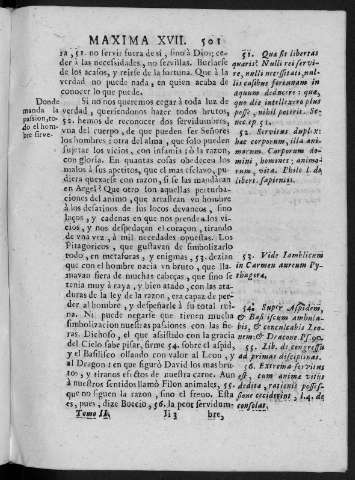 MAXIMA XVII. 501
ra, 51. no servir fuera de sí, sino à Dios; ce-
der à las necesidades, no servillas. Burlarse
de los acasos, y reirse de la fortuna. Que à la
verdad no puede nada, en quien acaba de
conocer lo que puede.
Donde
manda la
passion, to-
do el hom-
bre sirve.
Si no queremos cegar à toda luz de
verdad, queriendonos hazer todos brutos,
52. hemos de reconocer dos servidumbres,
vna del cuerpo, de que pueden ser Señores
los hombres: otra del alma, que solo pueden
sujetar los vicios, con infamia ò la razon,
con gloria. En quantas cosas obedeces los
malos à sus apetitos, que el mas esclavo, pu-
diera quexarse con razon, si se las mandàran
en Argel? Que otro son aquellas perturba-
ciones del animo, que arrastran vn hombre
à los desatinos de sus locos devaneos, sino
laços, y cadenas en que nos prenden los vi-
cios, y nos despedaçan el coraçon, tirando
de vna vez, à mil necedades opuestas. Los
Pitagoricos, que gustavan de simbolizarlo
todo, en metaforas, y enigmas, 53. dezian
que con el hombre nacia vn bruto, que lla-
mavan fiera de muchas cabeças, que sino se
tenia muy à raya, y bien atado, con las ata-
duras de la ley de la razon, era capaz de per-
der al hombre, y despeñarle à su total rui-
na. Ni puede negarse que tienen mucha
simbolizacion nuestras passiones con las fie-
ras. Dichoso, el que assistido con la gracia
del Cielo sabe pisar, firme 54. sobre el aspid,
y el Basilisco ossando con valor al Leon, y
al Dragon: en que figurò David los mas bru-
tos, y tiranos efectos de nuestra carne. Aun
à nuestros sentidos llamò Filon animales, 55.
que no siguen la razon, sino el freno. Esta
es, pues, dize Boecio, 56. la peor servidum-
Tomo II. Ii 3 bre,
51. Quæ sit libertas
quæris? Nulli rei servi-
re, nulli necessitati, nul-
lis casibus fortunam in
æquum deducere: quæ,
quo die intellexero plus
posse, nihil poterit. Se-
nec. ep. 51.
52. Servitus duplex:
hæc corporum, illa ani-
marum. Corporum do-
mini, homines; anima-
rum, vitia. Philo l. de
liber. sapientis.
53. Vide Iamblicum
in Carmen aureum Py-
thagoræ.
54. Super Aspidem,
& Basiliscum ambula-
bis, & conculcabis Leo-
nem & Draconem Ps. 90.
55. Lib. de congressu
ad primas disciplinas.
56. Extrema servitus
est, cum animæ vitiis
deditæ, rationis posses-
sione ceciderint, l. 4. de
consolat.